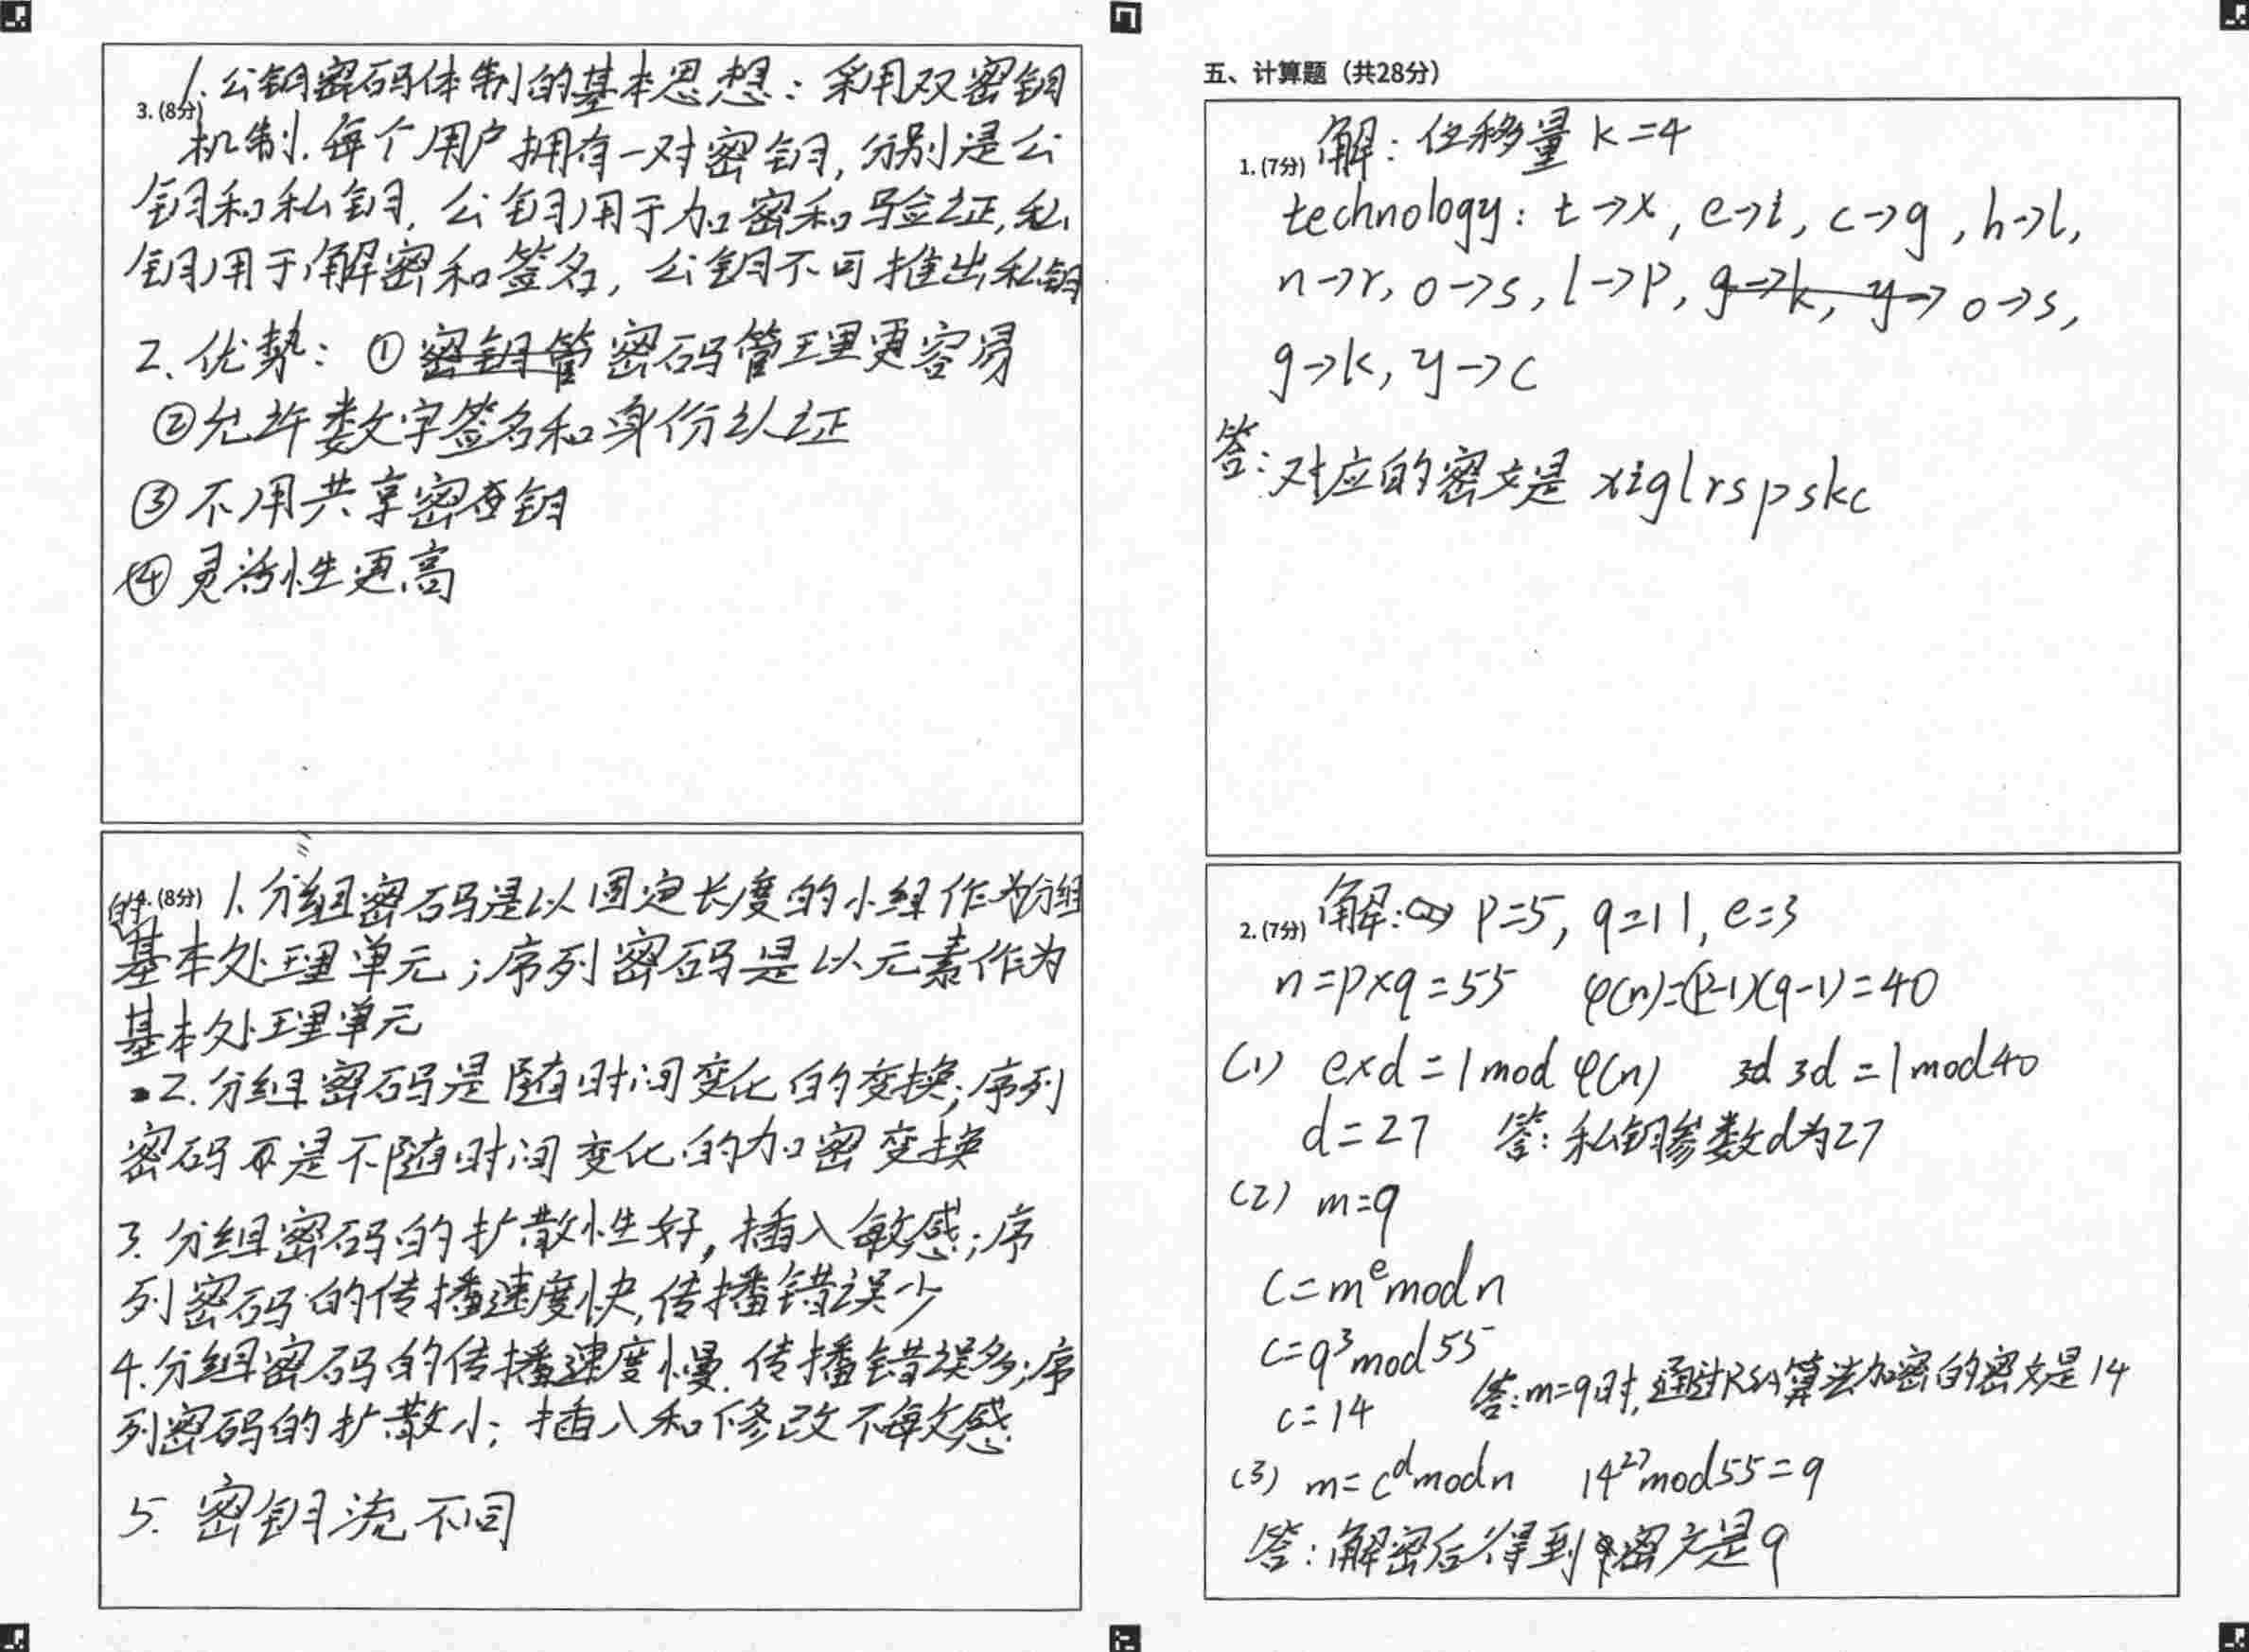 3. (8分)
1. 公钥密码体制的基本思想：采用双密钥
机制. 每个用户拥有一对密钥, 分别是公
钥和私钥, 公钥用于加密和验证, 私
钥用于解密和签名, 公钥不可推出私钥
2. 优势: ① 密码管理更容易
②允许数字签名和身份认证
③不用共享密钥
④灵活性更高
4. (8分)
1. 分组密码是以固定长度的小组作为分组的
基本处理单元; 序列密码是以元素作为
基本处理单元
2. 分组密码是随时间变化的变换; 序列
密码是不随时间变化的加密变换
3. 分组密码的扩散性好, 插入敏感; 序
列密码的传播速度快, 传播错误少
4. 分组密码的传播速度慢. 传播错误多; 序
列密码的扩散小; 插入和修改不敏感
5. 密钥流不同
五、计算题（共28分）
1. (7分)
解: 位移量 k=4
technology: t→x, e→i, c→g, h→l,
n→r, o→s, l→p, o→s,
g→k, y→c
答: 对应的密文是 xiglrspskc
2. (7分)
解: p=5, q=11, e=3
n=p×q=55 φ(n)=(p-1)(q-1)=40
(1) e×d=1 mod φ(n) 3d=1 mod 40
d=27 答: 私钥参数d为27
(2) m=9
c=m^e mod n
c=9³ mod 55
c=14 答: m=9时, 通过RSA算法加密的密文是14
(3) m=c^d mod n 14²⁷ mod 55=9
答: 解密后得到密文是9